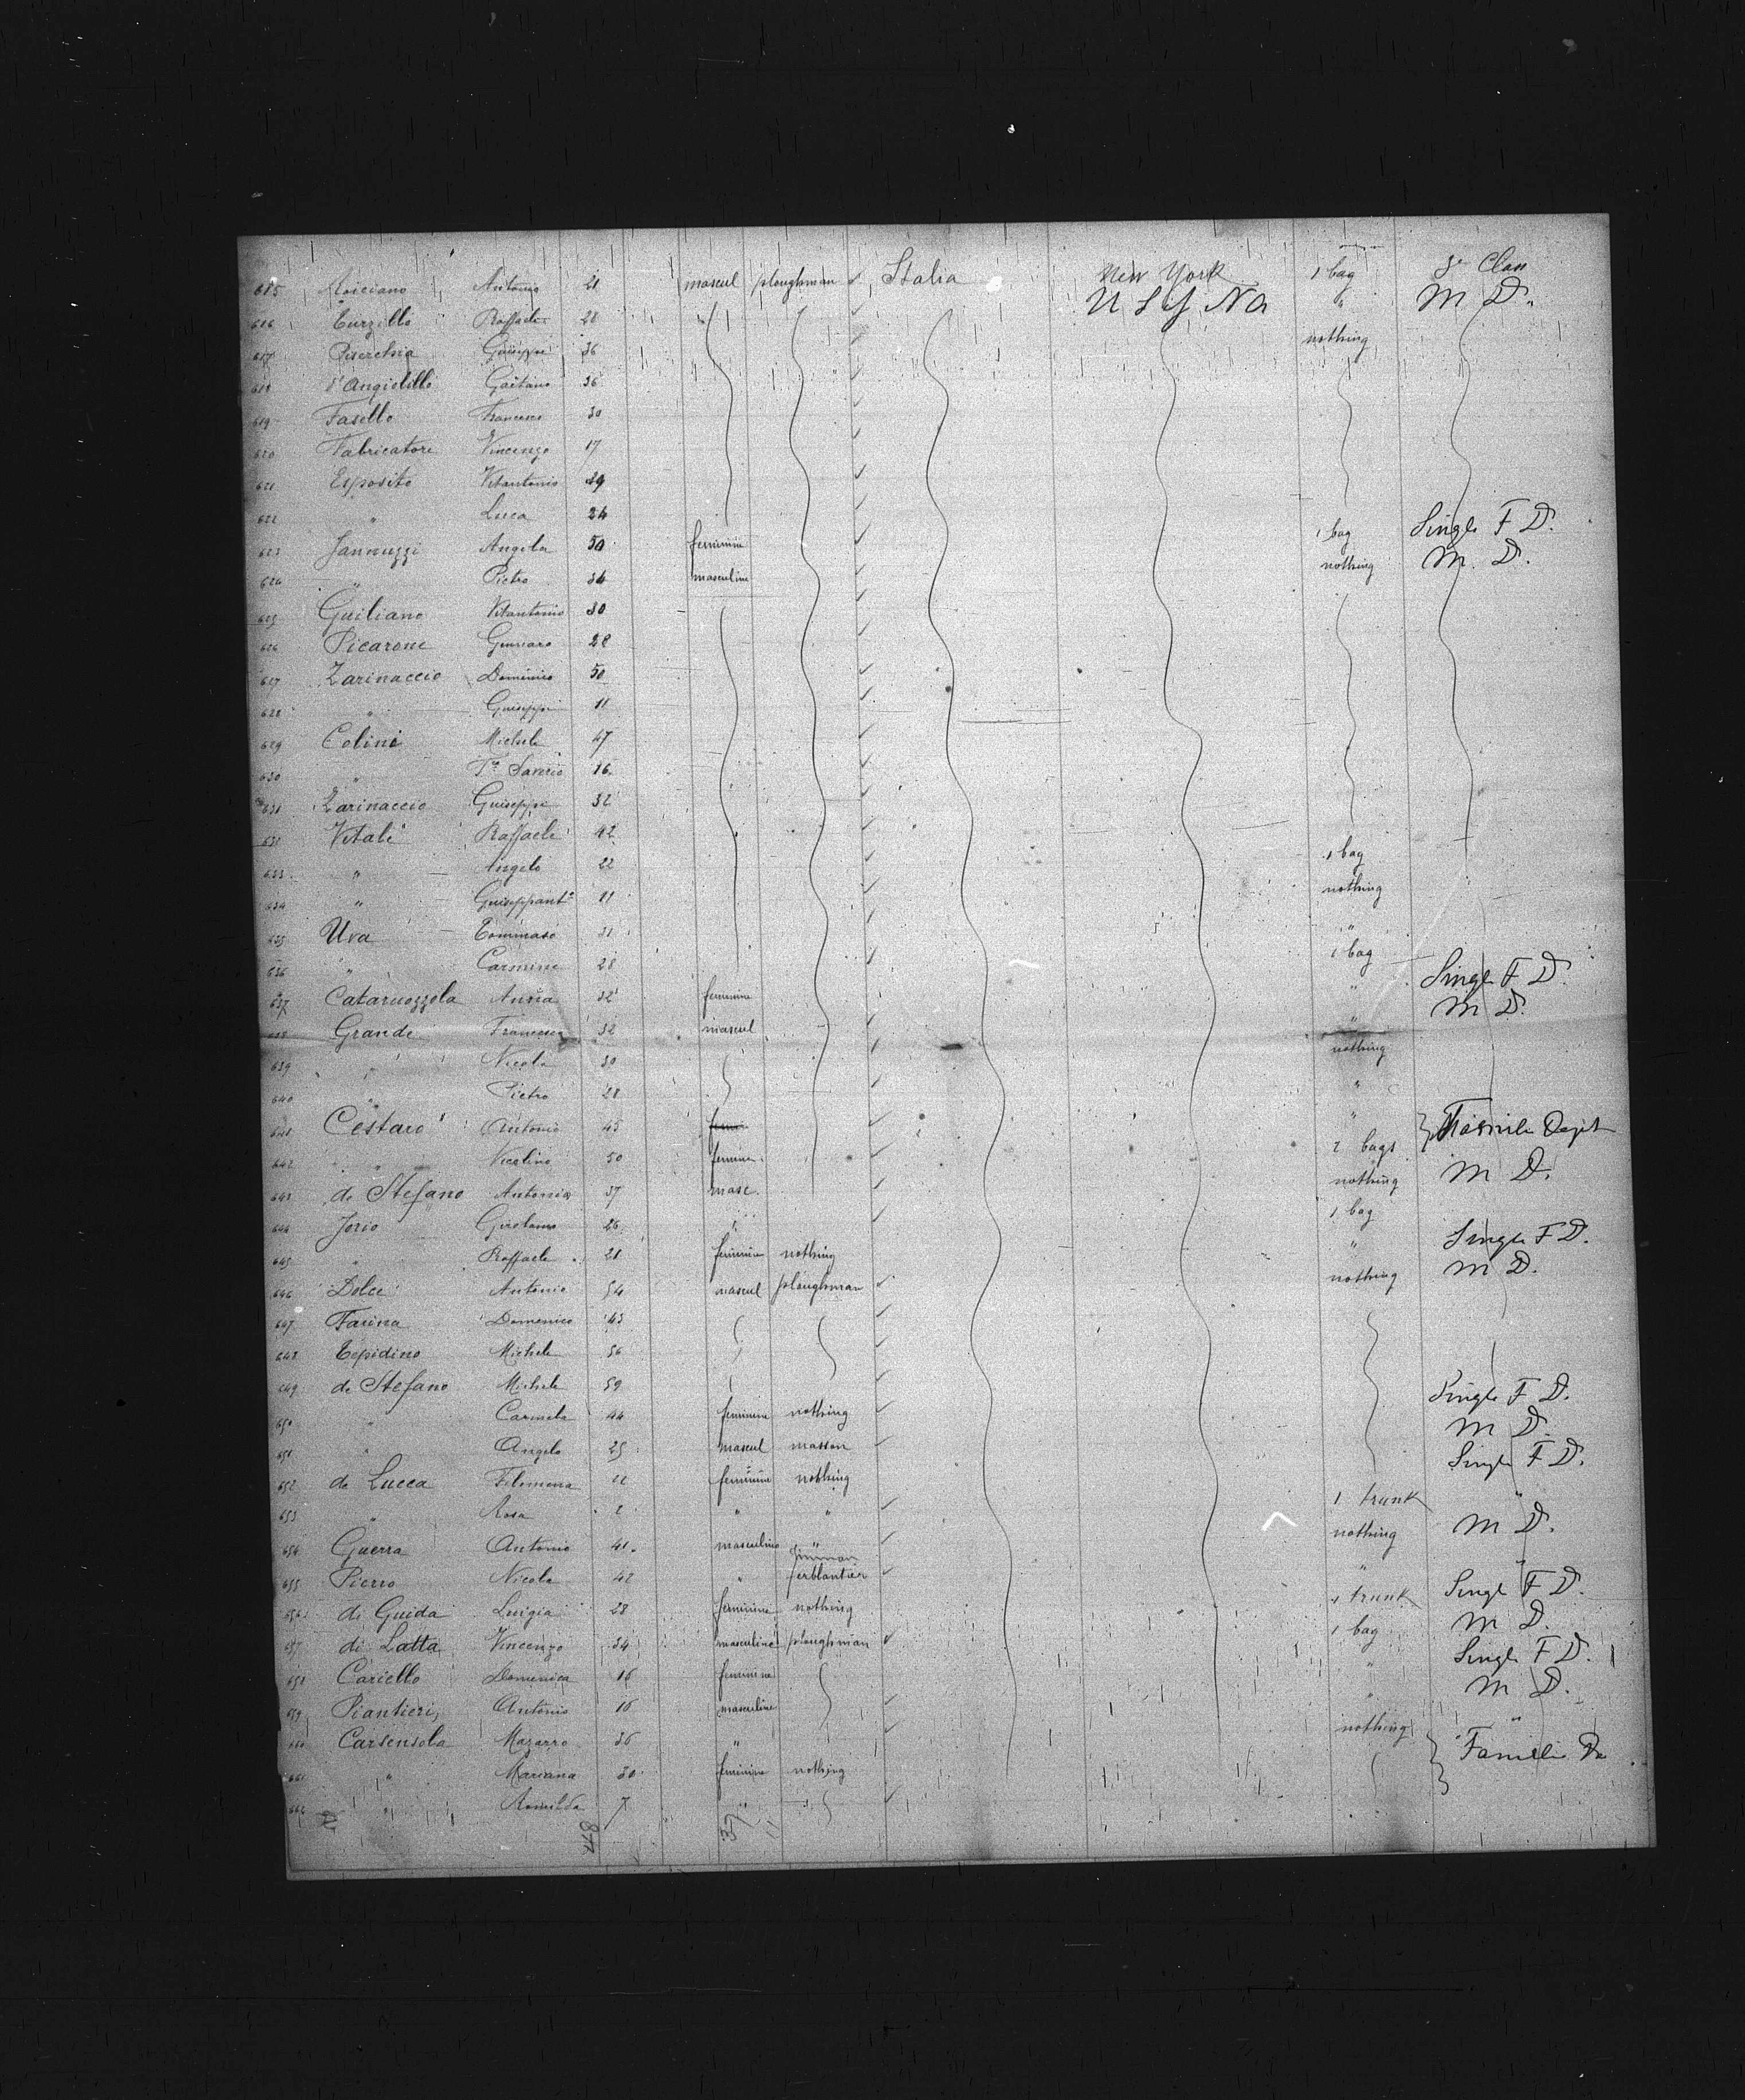 615 Antonio 21 mascul ploughman Italia New York 1 bag 3e Class
616 Curzillo Raffaele 28 U S of Na " M D.
617 Piserchia Giuseppe 36 nothing
618 d'Angiolillo Gaetano 36
619 Fasello Francesco 30
620 Fabricatore Vincenzo 17
621 Esposito Vitantonio 29
622 " Luca 24
623 Jannuzzi Angela 50 feminine 1 bag Single F D.
624 " Pietro 34 masculine nothing M. D.
625 Guiliano Vitantonio 30
626 Picarone Gennaro 28
627 Zarinaccio Dominico 50
628 " Guiseppe 11
629 Colini Michele 47
630 " Fco Saverio 16
631 Zarinaccio Guiseppe 32
632 Vitale Raffaele 42
633 " Angelo 22 1 bag
634 " Guiseppanto 11 nothing
635 Uva Tommaso 31 "
636 " Carmine 28 1 bag
637 Cataruozzola Anna 32 feminine " Single F D.
638 Grande Francesco 32 mascul " M D.
639 " Nicola 30 nothing
640 " Pietro 28 "
641 Cestaro Antonio 45 "
642 " Nicolina 50 feminin. 2 bags
643 de Stefano Antonio 37 masc. nothing M D.
644 Jorio Girolamo 26 " 1 bag
645 " Raffaele 21 feminine nothing " Single F D.
646 Dolce Antonio 54 mascul ploughman nothing M D.
647 Farina Domenico 43
648 Tepidino Michele 56
649 de Stefano Michele 59
650 " Carmela 44 feminine nothing Single F D.
651 " Angelo 25 mascul masson M D.
652 de Lucca Filomena 22 feminine nothing Single F D.
653 " Rosa 2 " " 1 trunk "
654 Guerra Antonio 41 masculine " nothing M D.
655 Pierro Nicola 42 " ferblantier " "
656 di Guida Luigia 28 feminine nothing 1 trunk Single F D.
657 di Latta Vincenzo 34 masculine ploughman 1 bag M D.
658 Cariello Domenica 16 feminine " Single F D.
659 Piantieri Antonio 16 masculine " M D.
660 Carsensola Mazarro 36 " nothing "
661 " Mariana 30 feminine nothing Famili
662 " Romilda 7 "